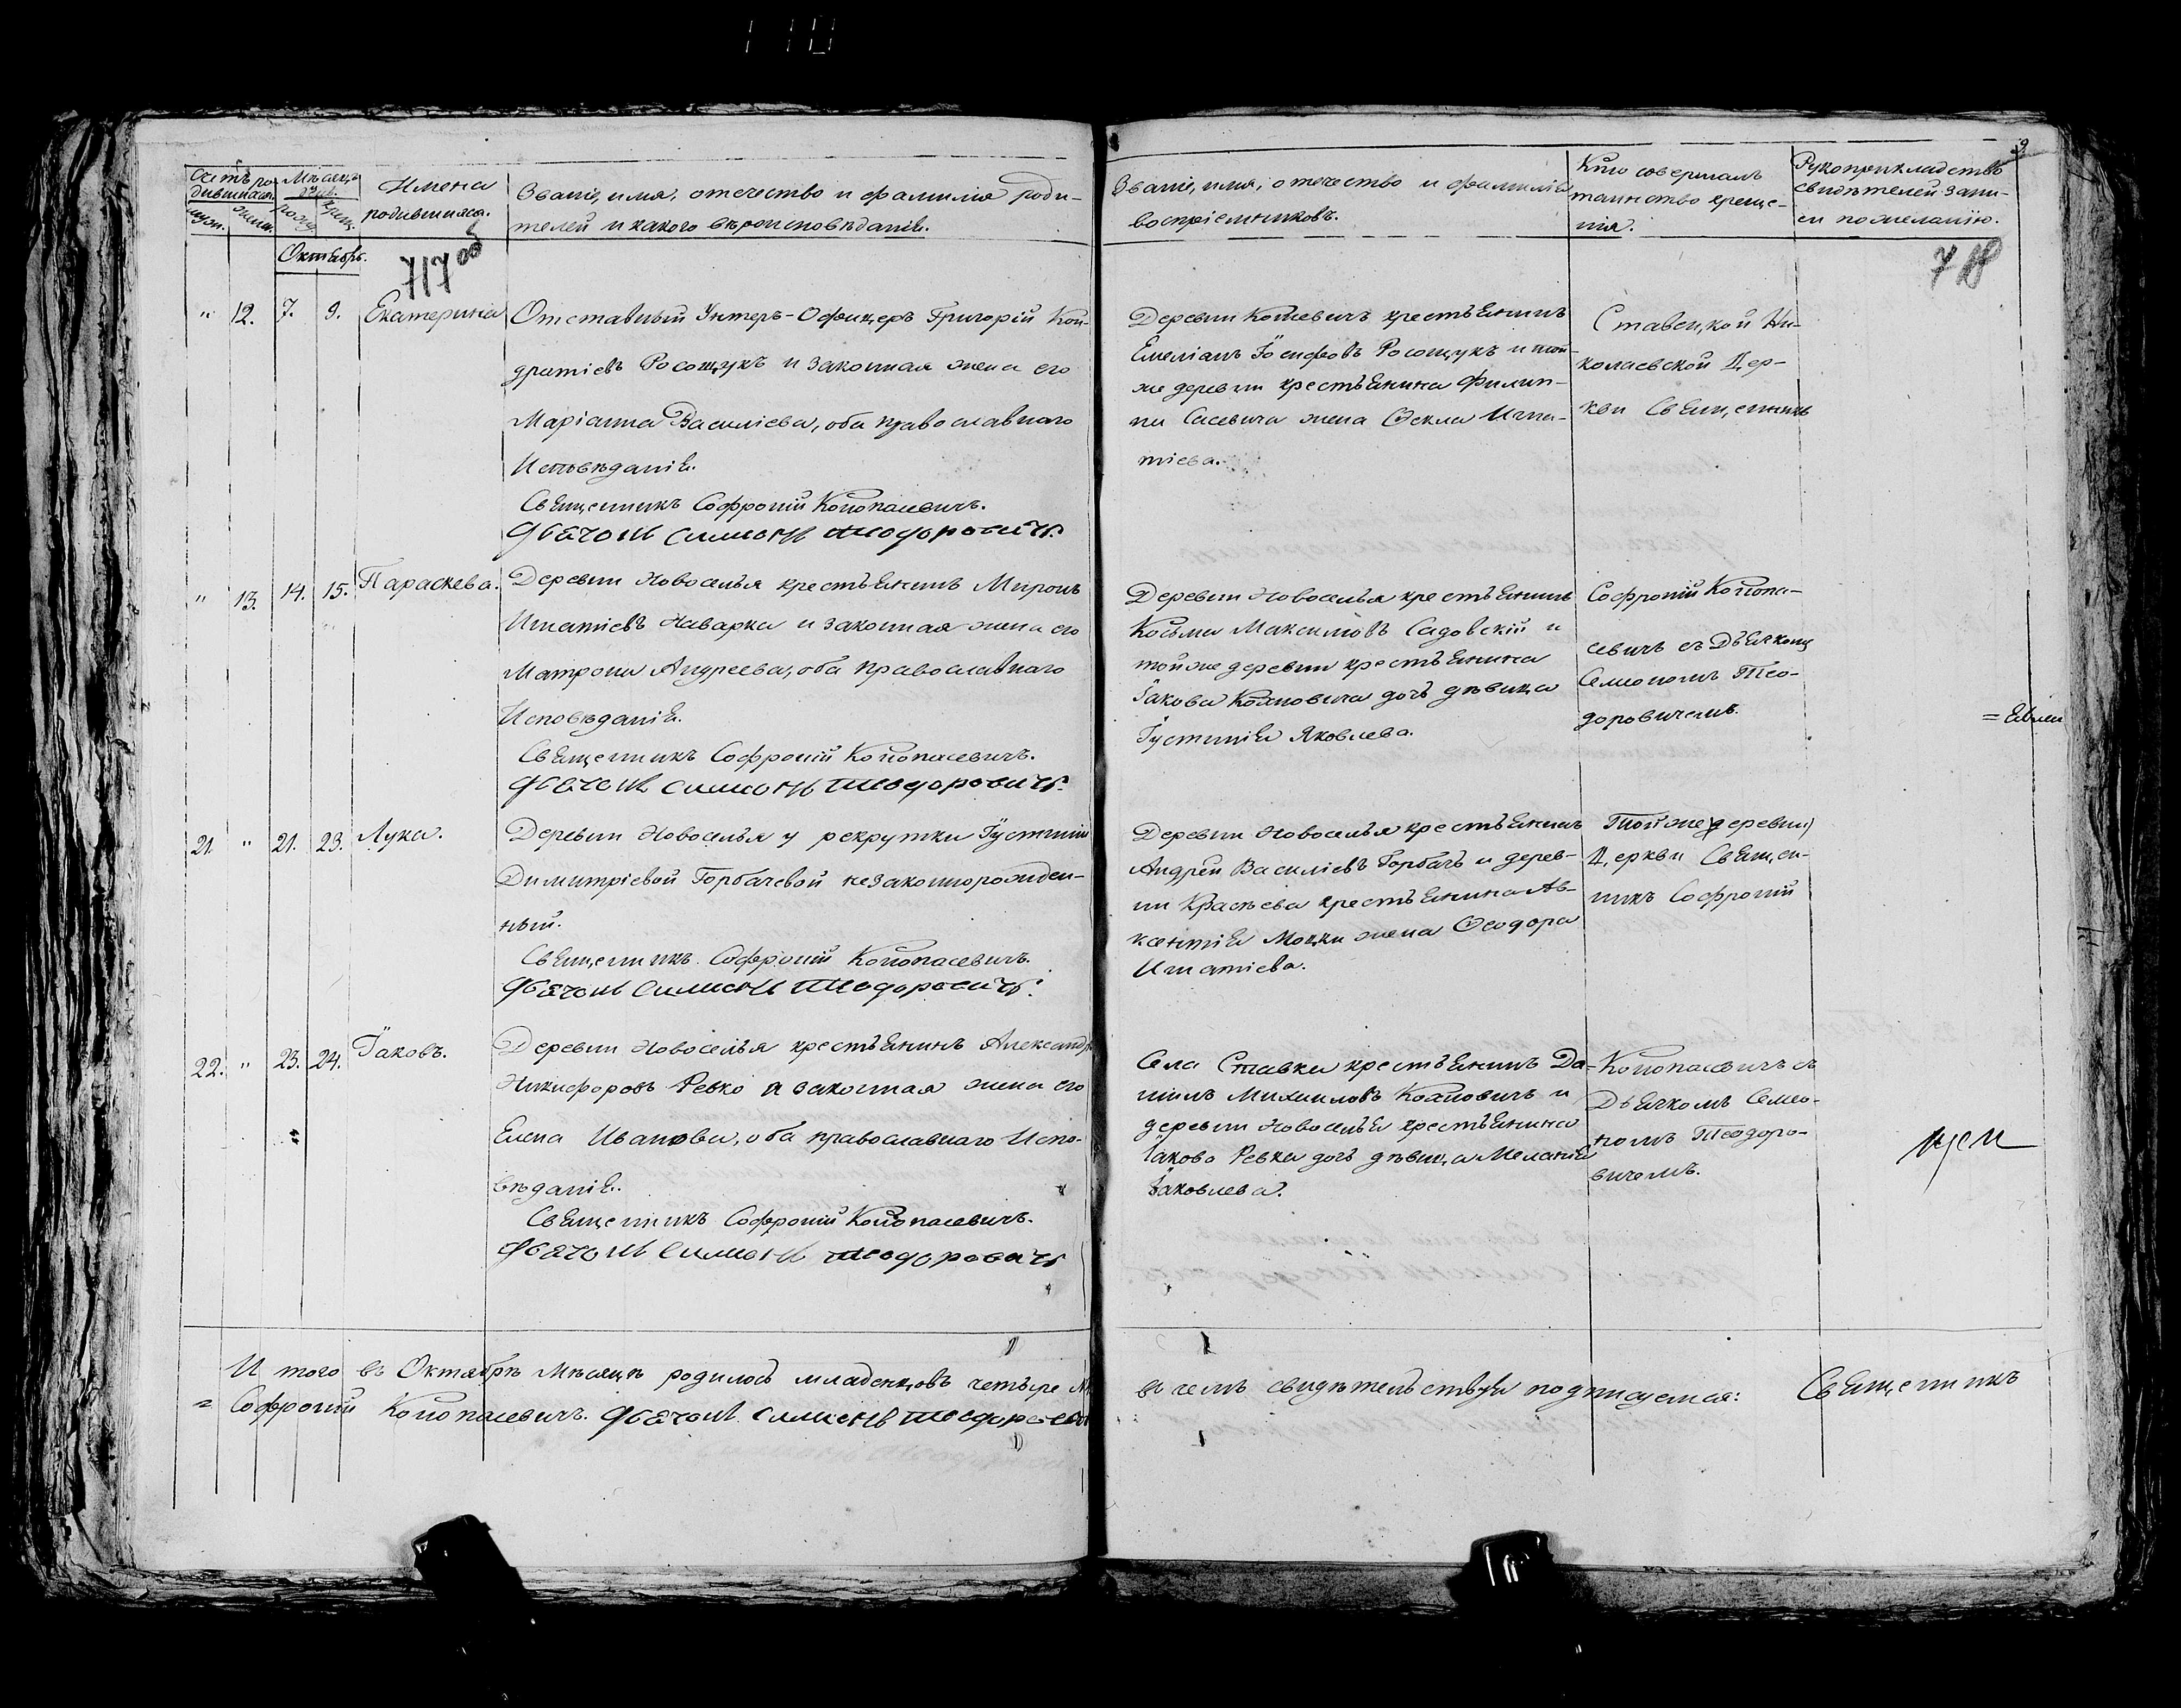 110
Счетъ ро-
дившихся.
муж.
жен.
Мѣсяцъ
рожд.
крещ.
Имена
родившихся.
Званіе, имя, отечество и фамилія роди-
телей и какого вѣроисповѣданія.
Октябрь.
717
" 12. 7. 9. Екатерина
Отставный Унтеръ-Офицеръ Григорій Кон-
дратіевъ Росощукъ и законная жена его
Маріанна Василіева, оба православнаго
Исповѣданія.
Священникъ Софроній Конопасевичъ.
Дьячокъ Симионъ Теодоровичъ.
" 13. 14. 15. Параскева.
Деревни Новоселья крестьянинъ Миронъ
Игнатіевъ Наварка и законная жена его
Матрона Андреева, оба православнаго
Исповѣданія.
Священникъ Софроній Конопасевичъ.
Дьячокъ Симионъ Теодоровичъ.
21. " 21. 23. Лука.
Деревни Новоселья у рекрутки Іустиніи
Димитріевой Горбачевой незаконнорожден-
ный.
Священникъ Софроній Конопасевичъ.
Дьячокъ Симионъ Теодоровичъ.
22. " 23. 24. Іаковъ.
Деревни Новоселья крестьянинъ Александръ
Никифоровъ Ревко и законная жена его
Елена Иванова, оба православнаго Испо-
вѣданія.
Священникъ Софроній Конопасевичъ.
Дьячокъ Симионъ Теодоровичъ
И того въ Октябрѣ Мѣсяцѣ родилось младенцовъ четыре
= Софроній Конопасевичъ. Дьячокъ Симионъ Теодоровичъ
Званіе, имя, отечество и фамилія
воспріемниковъ.
Кто совершалъ
таинство креще-
нія.
Рукоприкладство
свидѣтелей запи-
си по желанію.
9
718
Деревни Котевичъ крестьянинъ
Емеліанъ Іосифовъ Росощукъ и той-
же деревни крестьянина Филип-
пи Сасевича жена Ѳекла Игна-
тіева.
Ставецкой Ни-
колаевской Цер-
кви Священникъ
Деревни Новоселья крестьянинъ
Косьма Максимовъ Садовскій и
тойже деревни крестьянина
Іакова Коановича дочь дѣвица
Іустинія Яковлева.
Софроній Конопа-
севичъ съ Дьячкомъ
Семіономъ Тео-
доровичемъ.
Деревни Новоселья крестьянинъ
Андрей Василіевъ Горбачъ и дерев-
ни Красѣева крестьянина Ав-
ксентія Моцки жена Ѳеодора
Игнатіева.
Тойже деревни
Церкви Священ-
никъ Софроній
Села Ставки крестьянинъ Да-
ніилъ Михаиловъ Коановичъ и
деревни Новоселья крестьянина
Іакова Ревка дочь дѣвица Меланія
Іаковлева.
Конопасевичъ съ
Дьячкомъ Семіо-
номъ Теодоро-
вичемъ.
въ чемъ свидѣтельствуя подписуемся: Священникъ